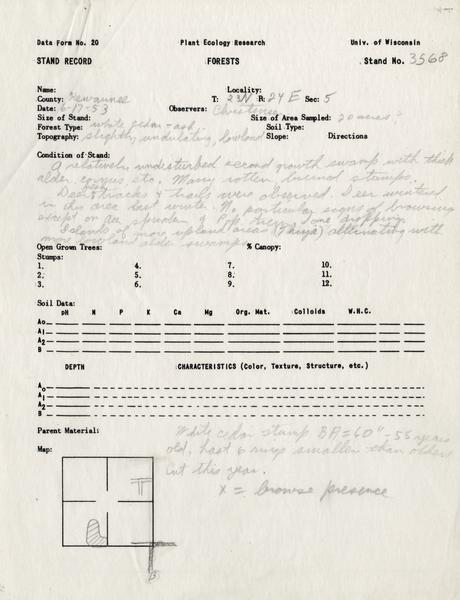 Data Form No. 20 Plant Ecology Research Univ. of Wisconsin
STAND RECORD FORESTS Stand No. 3568
Name: Locality:
County: Kewaunee T: 23N R: 24 E Sec: 5
Date: 6-17-53 Observers: Christensen
Size of Stand: Size of Area Sampled: 20 acres?
Forest Type: white cedar-ash Soil Type:
Topography: slightly undulating, lowland Slope: Directions
Condition of Stand:
A relatively undisturbed second growth swamp with thick
alder, etc. Many rotten burned stumps.
Deer tracks & trails were observed. Deer wintered
in this area last winter. No particular signs of browsing
except on and dropping.
Islands of more upland areas (Thuja) alternating with
more lowland alder swamps.
Open Grown Trees: % Canopy:
Stumps:
1. 4. 7. 10.
2. 5. 8. 11.
3. 6. 9. 12.
Soil Data:
pH N P K Ca Mg Org. Mat. Colloids W.H.C.
A₀
A₁
A₂
B
DEPTH CHARACTERISTICS (Color, Texture, Structure, etc.)
A₀
A₁
A₂
B
Parent Material:
White cedar stump BA=60" - 55 years
old, last 6 rings smaller than older
Cut this year.
Map:
X = browse presence